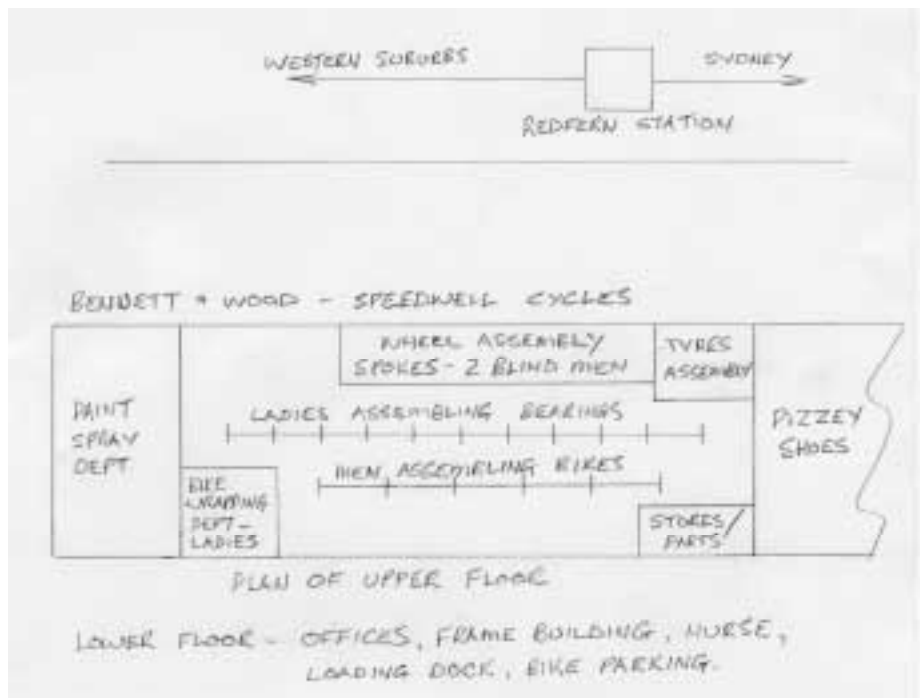 WESTERN SUBURBS
SYDNEY
REDFERN STATION
BENNETT & WOOD - SPEEDWELL CYCLES
WHEEL ASSEMBLY
SPOKES - 2 BLIND MEN
TYRES
ASSEMBLY
PAINT
SPRAY
DEPT
LADIES ASSEMBLING BEARINGS
PIZZEY
SHOES
MEN ASSEMBLING BIKES
BIKE
WRAPPING
DEPT -
LADIES
STORES/
PARTS
PLAN OF UPPER FLOOR
LOWER FLOOR - OFFICES, FRAME BUILDING, NURSE,
LOADING DOCK, BIKE PARKING.